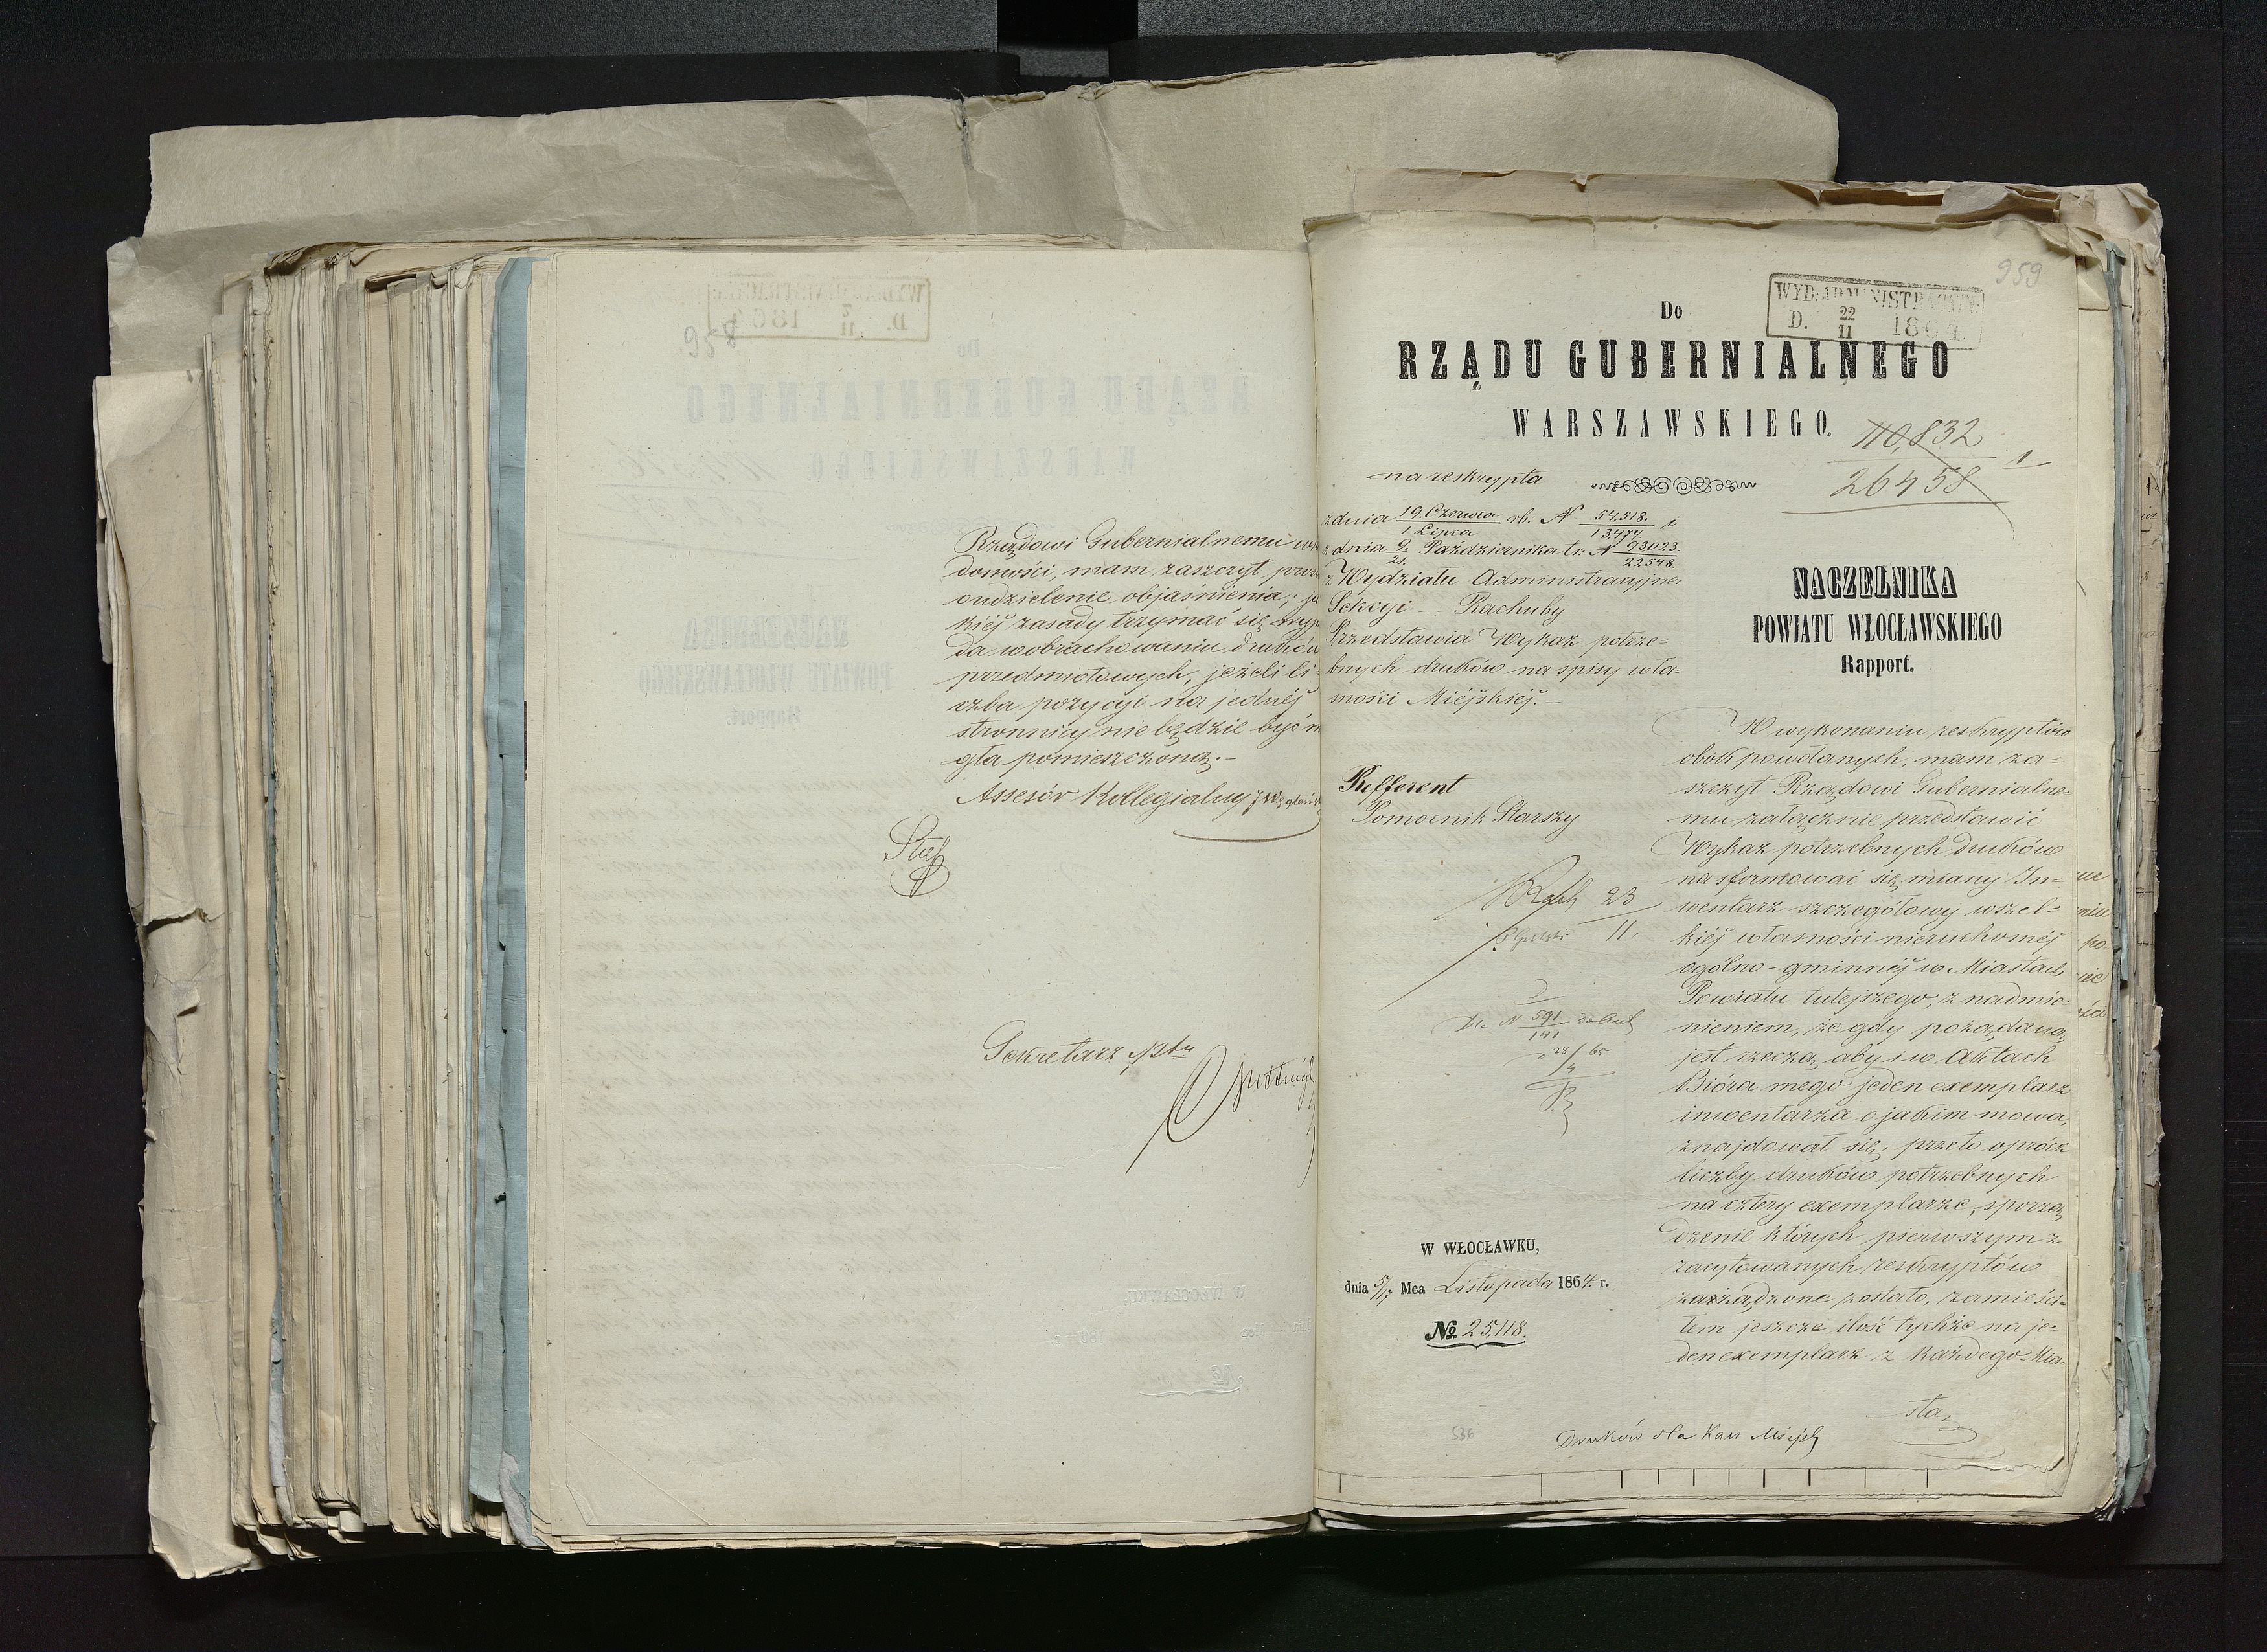 958
Rządowi Gubernialnemu
domości, mam zaszczyt
o udzielenie objaśnienia, ja
kiéj zasady trzymać się
da w obrachowaniu druków
przedmiotowych, jeżeli li-
czba pozycyi na jednéj
stronnicy nie będzie być m
gła pomieszczoną.-
Assesór Kollegialny
Sekretarz
959
WYD: ADMINISTRACYJNY
D. 22/11 1864.
Do
RZĄDU GUBERNIALNEGO
WARSZAWSKIEGO.
110,832
26458
1
na reskrypta
z dnia 19 Czerwca / 1 Lipca rb: N 54,518. / 13,474. i
z dnia 9. / 21. Października t.r. N 93023. / 22548.
z Wydziału Administracyjne:
Sekcyi - Rachuby
Przedstawia Wykaz potrze=
bnych druków na spisy wła=
sności Miéjskiéj.-
Refferent
Pomocnik Starszy
23
11.
N 591 / 141
28/4 65
W WŁOCŁAWKU,
dnia 5/17 Mca Listopada 1864. r.
No. 25,118.
NACZELNIKA
POWIATU WŁOCŁAWSKIEGO
Rapport.
W wykonaniu reskryptów
obok powołanych, mam za=
szczyt Rządowi Gubernialne=
mu załącznie przedstawić
Wykaz potrzebnych druków
na sformować się miany In=
wentarz szczegółowy wszel=
kiéj własności nieruchoméj
ogólno-gminnéj w Miastach
Powiatu tutejszego, z nadmie=
nieniem, że gdy pożądaną
jest rzeczą, aby i w Aktach
Bióra mego jeden exemplarz
inwentarza o jakim mowa,
znajdował się; przeto oprócz
liczby druków potrzebnych
na cztery exemplarze, sporzą
dzenie których pierwszym z
zacytowanych reskryptów
zarządzone zostało, zamieści=
łem jeszcze ilość tychże na je=
den exemplarz z każdego Mia=
sta,
536
Druków dla Kass Miejsk